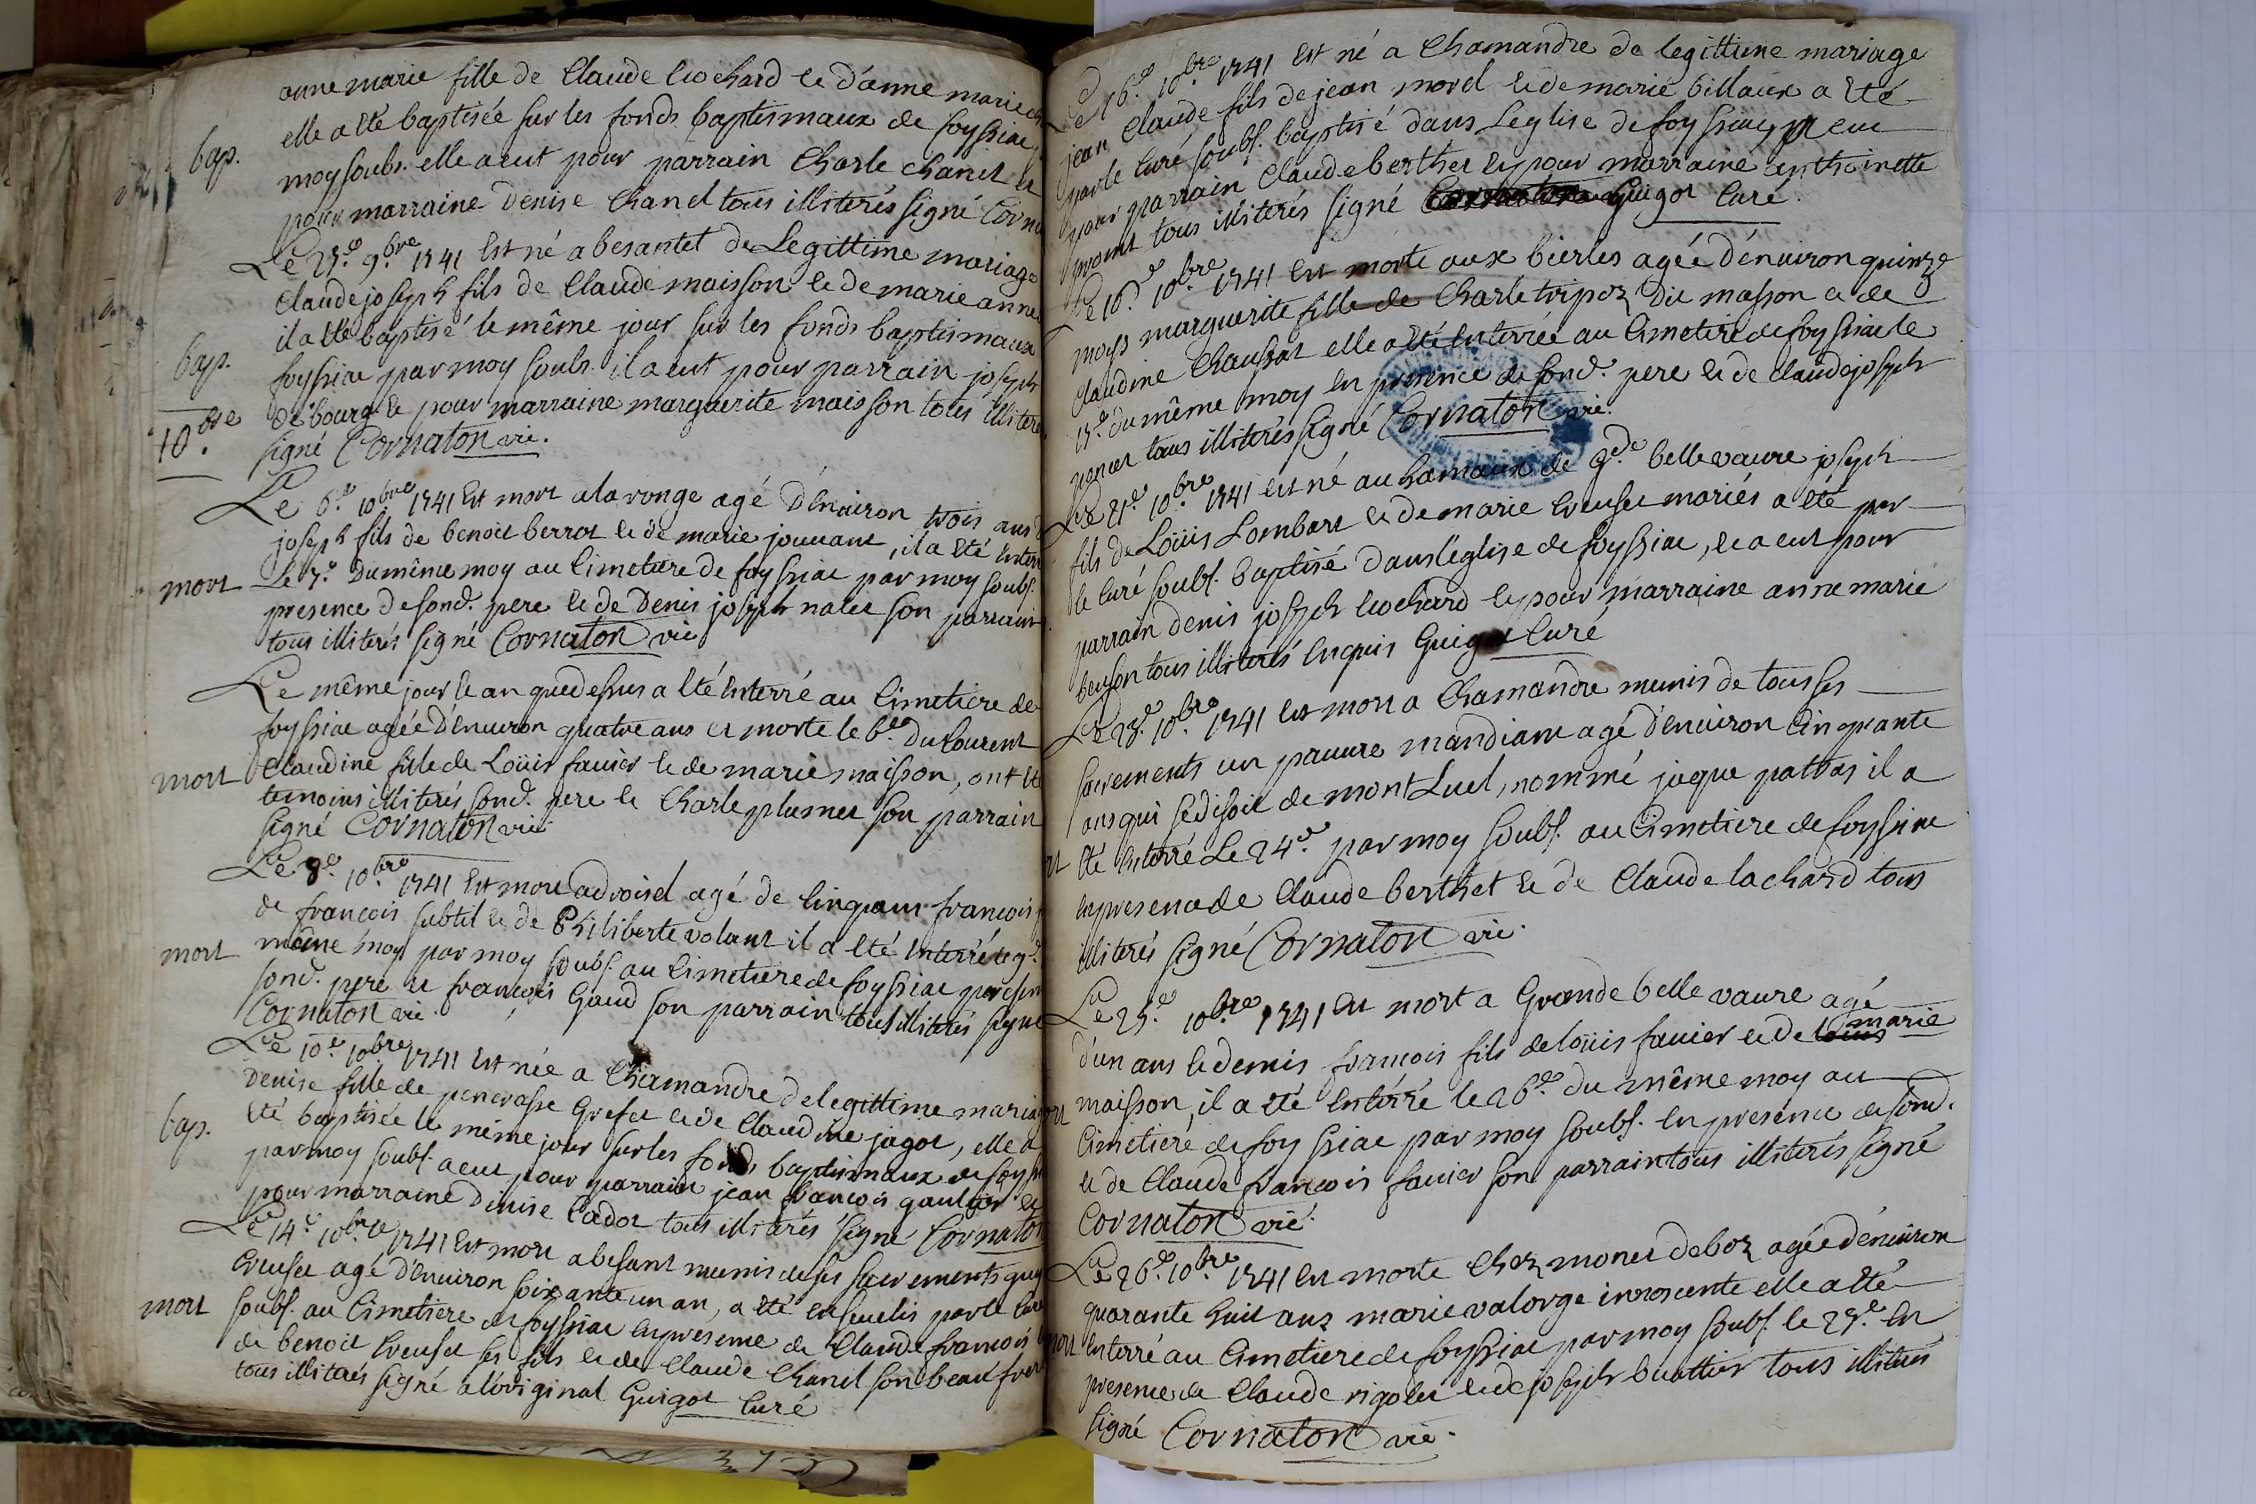 anne marie fille de Claude Cochard et d'anne marie
bap. elle a eté baptisée sur les fonds baptismaux de foyssiac
moy soubs. elle a eut pour parrain Charle Chanel et
pour marraine Denise Chanel tous illiterés signé Corna
Le 25.e 9.bre 1741 est né a besantet de Legittime mariage
Claude joseph fils de Claude maisson et de marie anne
bap. il a eté baptisé le même jour sur les fonds baptismaux
foyssiac par moy soubs. il a eut pour parrain joseph
debourg et pour marraine marguerite maisson tous illiteré
10.bre signé Cornaton vic.
Le 6.e 10.bre 1741 est mort a la ronge agé d'énuiron trois ans
joseph fils de benoit berrot et de marie jouuant, il a eté enterr
mort Le 7.e du même moy au Cimetiere de foyssiac par moy soubs.
presence de sond. pere et de Denis joseph nalet son parrain
tous illiterés signé Cornaton vic
Le même jour et an que dessus a eté enterré au Cimetiere de
foyssiac agée d'énuiron quatre ans et morte le 6.e du Courent
mort Claudine fille de Loüis fauier et de marie maisson, ont eté
temoins illiterés sond. pere et Charle plumet son parrain
signé Cornaton vic
Le 8.e 10.bre 1741 est mort a droisel agé de Cinq ans francois
de francois subtil et de Philiberte volant il a eté enterré le 9.e
mort même moy par moy soubs. au Cimetiere de foyssiac presen
sond. pere et francois Gaud son parrain tous illiterés signé
Cornaton vic.
Le 10.e 10.bre 1741 est née a Chamandre de legittime maria
Denise fille de pencrasse Grefet et de Claudine jagot, elle a
bap. eté baptisée le même jour sur les fonds baptismaux de foyssi
par moy soubs. a eut pour parrain jean francois gaultier et
pour marraine Denise Cadot tous illiterés signé Cornaton
Le 14.e 10.bre 1741 est mort a besant munis de ses sacrements
Creuset agé d'énuiron soixante un an, a eté enseuelis par le Curé
mort soubs. au Cimetiere de foyssiac en presence de Claude francois
de benoit Creuset ses fils et de Claude Chanel son beau frere
tous illiterés signé a l'original Guigot Curé
Le 16.e 10.bre 1741 est né a Chamandre de legittime mariage
jean Claude fils de jean morel et de marie billaux a eté
par le Curé soubs. baptisé dans L'eglise de foyssiac, et eut
pour parrain Claude berthet et pour marraine anthoinette
tous illiterés signé Guigot Curé
Le 16.e 10.bre 1741 est morte aux bierles agée d'énuiron quinze
moys marguerite fille de Charle tripoz dit masson et de
Claudine Chaussat elle a eté enterrée au Cimetiere de foyssiac le
17.e du même moy en presence de sond. pere et de Claude joseph
poncet tous illiterés signé Cornaton vic.
Le 21.e 10.bre 1741 est né au hamaux de g.de bellevaure joseph
fils de Loüis Lombart et de marie Creuset mariés a eté par
le Curé soubs. baptisé dans l'eglise de foyssiac, et a eut pour
parrain denis joseph Cochard et pour marraine anne marie
beuson tous illiterés enquis Guigot Curé
Le 23.e 10.bre 1741 est mort a Chamandre munis de tous ses
sacrements un pauure mandiant agé d'énuiron Cinquante
ans qui se disoit de montLuel, nommé jaque pattas il a
eté enterré Le 24.e par moy soubs. au Cimetiere de foyssiac
en presence de Claude berthet et de Claude lachard tous
illiterés signé Cornaton vic.
Le 25.e 10.bre 1741 est mort a Grande bellevaure agé
d'un ans et demis francois fils de loüis fauier et de marie
maisson, il a eté enterré le 26.e du même moy au
Cimetiere de foyssiac par moy soubs. en presence de sond.
et de Claude francois fauier son parrain tous illiterés signé
Cornaton vic.
Le 26.e 10.bre 1741 est morte Chez monet deboz agée d'énuiron
quarante huit ans marie valorge innoscente elle a eté
mort enterré au Cimetiere de foyssiac par moy soubs. le 27.e en
presence de Claude rigolet et de joseph buattier tous illiterés
signé Cornaton vic.